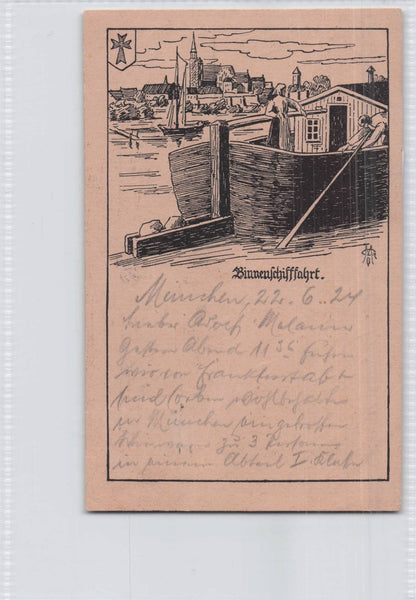 Binnenschifffahrt.
München, 22. 6. 24
Lieber Adolf Melanie
Gestern Abend 11 35 fuhren
wir von Frankfurt ab &
sind soeben wohlbehalten
in München eingetroffen
zu 3 Personen
in einem Abteil I. Klasse